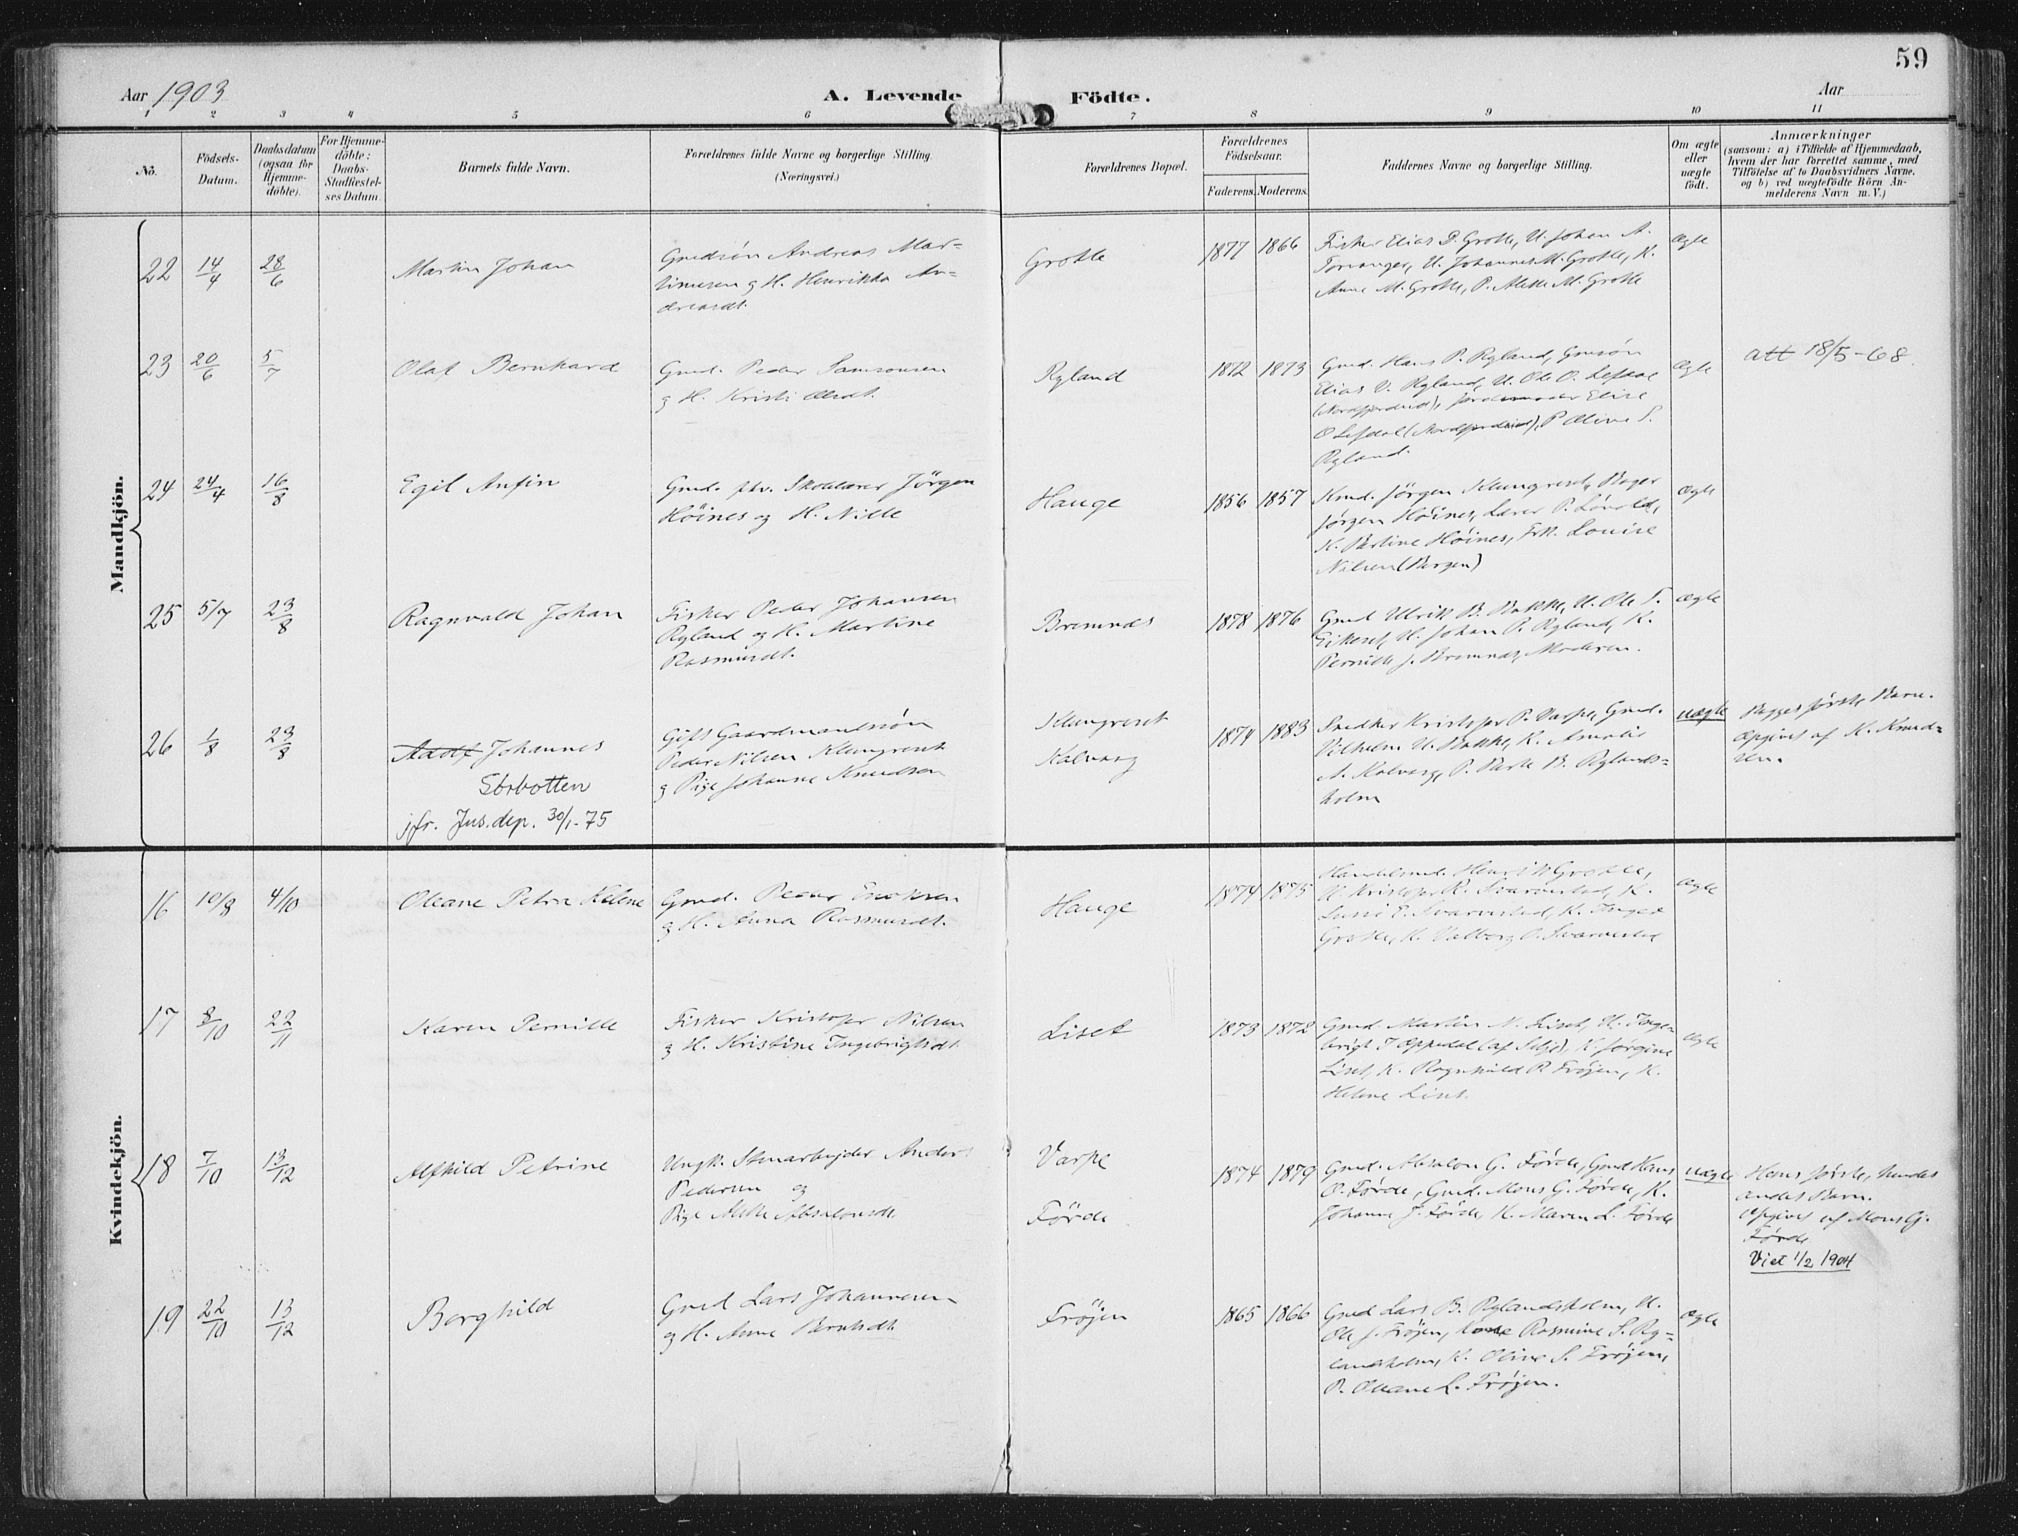 59
Aar 1903
A. Levende Födte.
Aar
1 2 3 4 5 6 7 8 9 10 11
No.
Födsels-
Datum.
Daabsdatum
(ogsaa for
Hjemme-
döbte).
For Hjemme-
döbte:
Daabs-
Stadfæstel-
ses Datum.
Barnets fulde Navn.
Forældrenes fulde Navne og borgerlige Stilling
(Næringsvei.)
Forældrenes Bopæl.
Forældrenes
Födselsaar.
Faderens. Moderens.
Faddernes Navne og borgerlige Stilling.
Om ægte
eller
uægte
födt.
Anmærkninger
(saasom: a) i Tilfælde af Hjemmedaab,
hvem der har forrettet samme, med
Tilföielse af to Daabsvidners Navne,
og b) ved uægtefödte Börn An-
melderens Navn m. V.)
Mandkjön.
22 14/4 28/6 Martin Johan
Gaardsøn Andreas Mar-
tinusen og H. Henrikka An-
dreasdt.
Grotle
1877 1866
Fisker Elias D. Grotle, U. Johan A.
Torvanger, U. Johannes M. Grotle, K.
Anne M. Grotle, P. Alette M. Grotle
Ægte
23 20/6 5/7 Olaf Bernhard
Gmd. Peder Samsonsen
og H. Kristi Olsdt.
Ryland
1872 1873
Gmd. Hans P. Ryland, Gmsøn
Elias V. Ryland, U. Ole O. Lefdal
(Nordfjordeid), Jordemoder Elise
O Lefdal (Nordfjordeid), P Oline S.
Ryland.
Ægte
att 18/5-68.
24 24/4 16/8 Egil Anfin
Gmd. fhv. Skolelærer Jörgen
Höines og H. Nille
Hauge
1856 1857
Gmd. Jörgen Klungreset, Bager
Jörgen Höines, Lærer P. Lövold,
K. Bertine Höines, Frk. Louise
Nilsen (Bergen)
Ægte
25 5/7 23/8 Ragnvald Johan
Fisker Peder Johansen
Ryland og H. Martine
Rasmusdt.
Bremnes
1878 1876
Gmd Ulrik B. Bakke, U. Ole S.
Eikeset, U. Johan P. Ryland, K.
Pernille J. Bremnes, Moderen.
Ægte
26 1/8 23/8 Johannes
Storbotten
jfr. Jus.dep. 30/1-75
Gift Gaardmandssøn
Peder Nilsen Klungreset
og Pige Johanne Knudsen
Klungreset
Kalvaag
1874 1883
Snedker Kristofer P. Varpe, Gmd.
Vilhelm U. Bakke, K. Amalie
A. Kalvaag, P. Berte B. Rylands-
holm
uægte
Begges første Barn.
Opgivet af K. Knud-
sen.
Kvindekjön.
16 10/8 4/10 Oleane Petra Heline
Gmd. Peder Eriksen
og H. Anna Rasmusdt.
Hauge
1874 1875
Handelsmd. Henrik Grotle,
U. Kristofer R. Svarvestad, K.
Lussi E. Svarvestad, K. Inger
Grotle, K. Valborg O. Svarvestad
Ægte
17 8/10 22/11 Karen Pernille
Fisker Kristofer Nilsen
og H. Kristine Ingebrigtsdt.
Liset
1873 1872
Gmd. Martin N. Liset, U. Inge-
brigt J. Oppedal (af Selje), K. Jørgine
Liset, K. Ragnhild P. Frøjen, K.
Helene Liset.
Ægte
18 7/10 13/12 Alfhild Petrine
Ungk. Stenarbejder Anders
Pedersen og
Pige Alette Absalonsdt
Varpe
Förde
1874 1879
Gmd. Absalon G. Förde, Gmd Hans
O. Förde, Gmd. Mons G. Förde, K.
Johanne J. Förde, K. Maren L. Förde
uægte
Hans første, hendes
andet Barn.
Opgivet af Mons G.
Förde
Viet 1/2 1904
19 22/10 13/12 Borghild
Gmd Lars Johannesen
og H. Anne Berntsdt.
Frøjen
1865 1866
Gmd Lars B. Rylandsholm, U.
Ole J. Frøjen, Kone Rasmine S. Ry-
landsholm, K. Oline S. Frøjen,
P. Oleane L. Frøjen.
Ægte